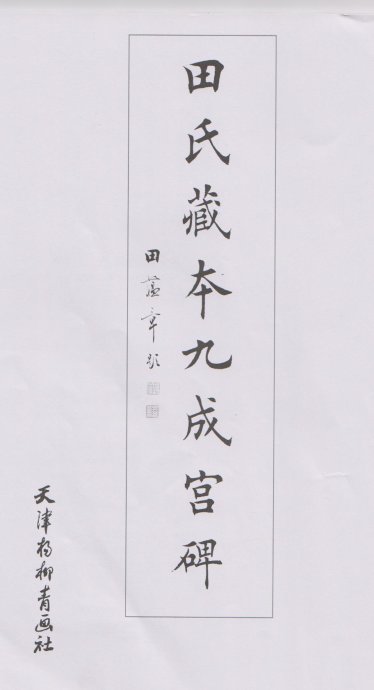 田氏藏本九成宫碑
田蕴章题
天津杨柳青画社